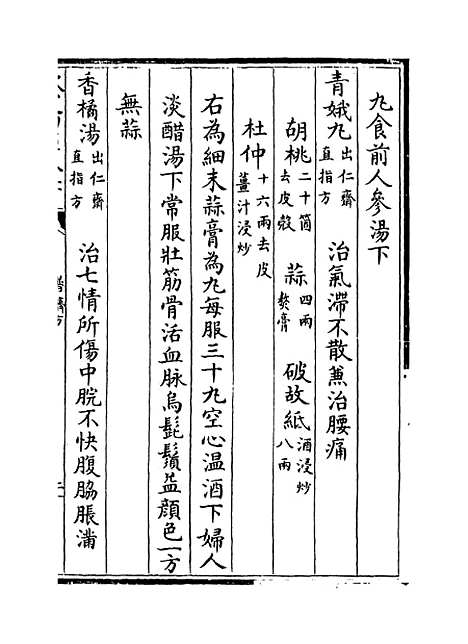 丸食前人參湯下
青娥丸出仁齋直指方　治氣滯不散兼治腰痛
胡桃二十箇去皮殻　蒜四兩熬膏　破故紙酒浸炒八兩
杜仲十六兩去皮薑汁浸炒
右為細末蒜膏為丸每服三十丸空心温酒下婦人
淡醋湯下常服壯筋骨活血脉烏髭鬚益顔色一方
無蒜
香橘湯出仁齋直指方　治七情所傷中脘不快腹脇脹滿
普濟方